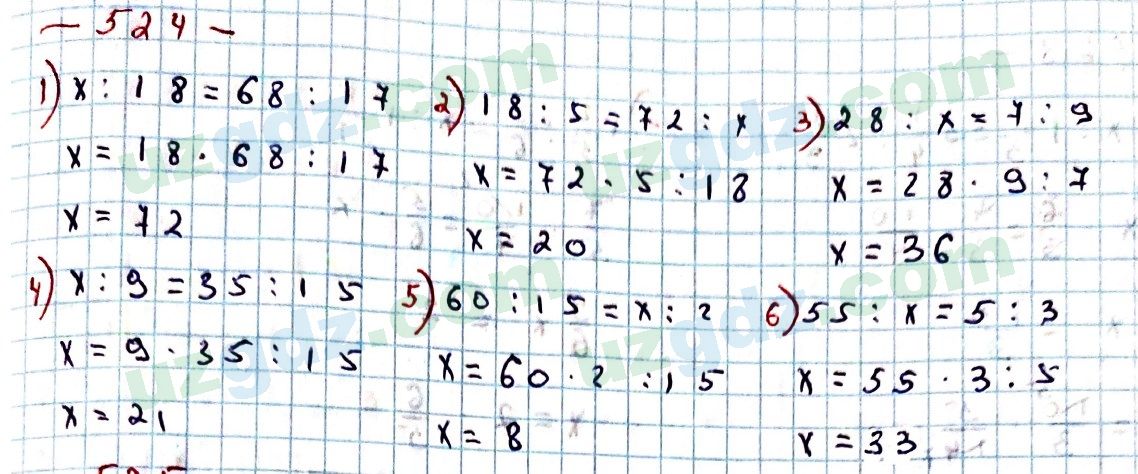 – 524 –
1) x : 18 = 68 : 17
x = 18 · 68 : 17
x = 72
2) 18 : 5 = 72 : x
x = 72 · 5 : 18
x = 20
3) 28 : x = 7 : 9
x = 28 · 9 : 7
x = 36
4) x : 9 = 35 : 15
x = 9 · 35 : 15
x = 21
5) 60 : 15 = x : 2
x = 60 · 2 : 15
x = 8
6) 55 : x = 5 : 3
x = 55 · 3 : 5
x = 33
uzgdz.com
uzgdz.com
uzgdz.com
uzgdz.com